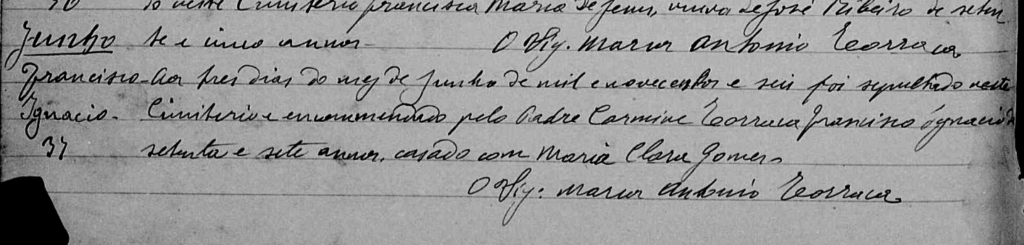 to neste Cimiterio Francisca Maria de Jesus, viuva de José Ribeiro de seten
Junho te e cinco annos O Vig. Marcos Antonio Torraca
Francisco Aos tres dias do mez de Junho de mil e novecentos e seis foi sepultado neste
Ignacio Cimiterio e encommendado pelo Padre Carmine Torraca Francisco Ignacio de
37 setenta e sete annos, casado com Maria Clara Gomes
O Vig: Marcos Antonio Torraca